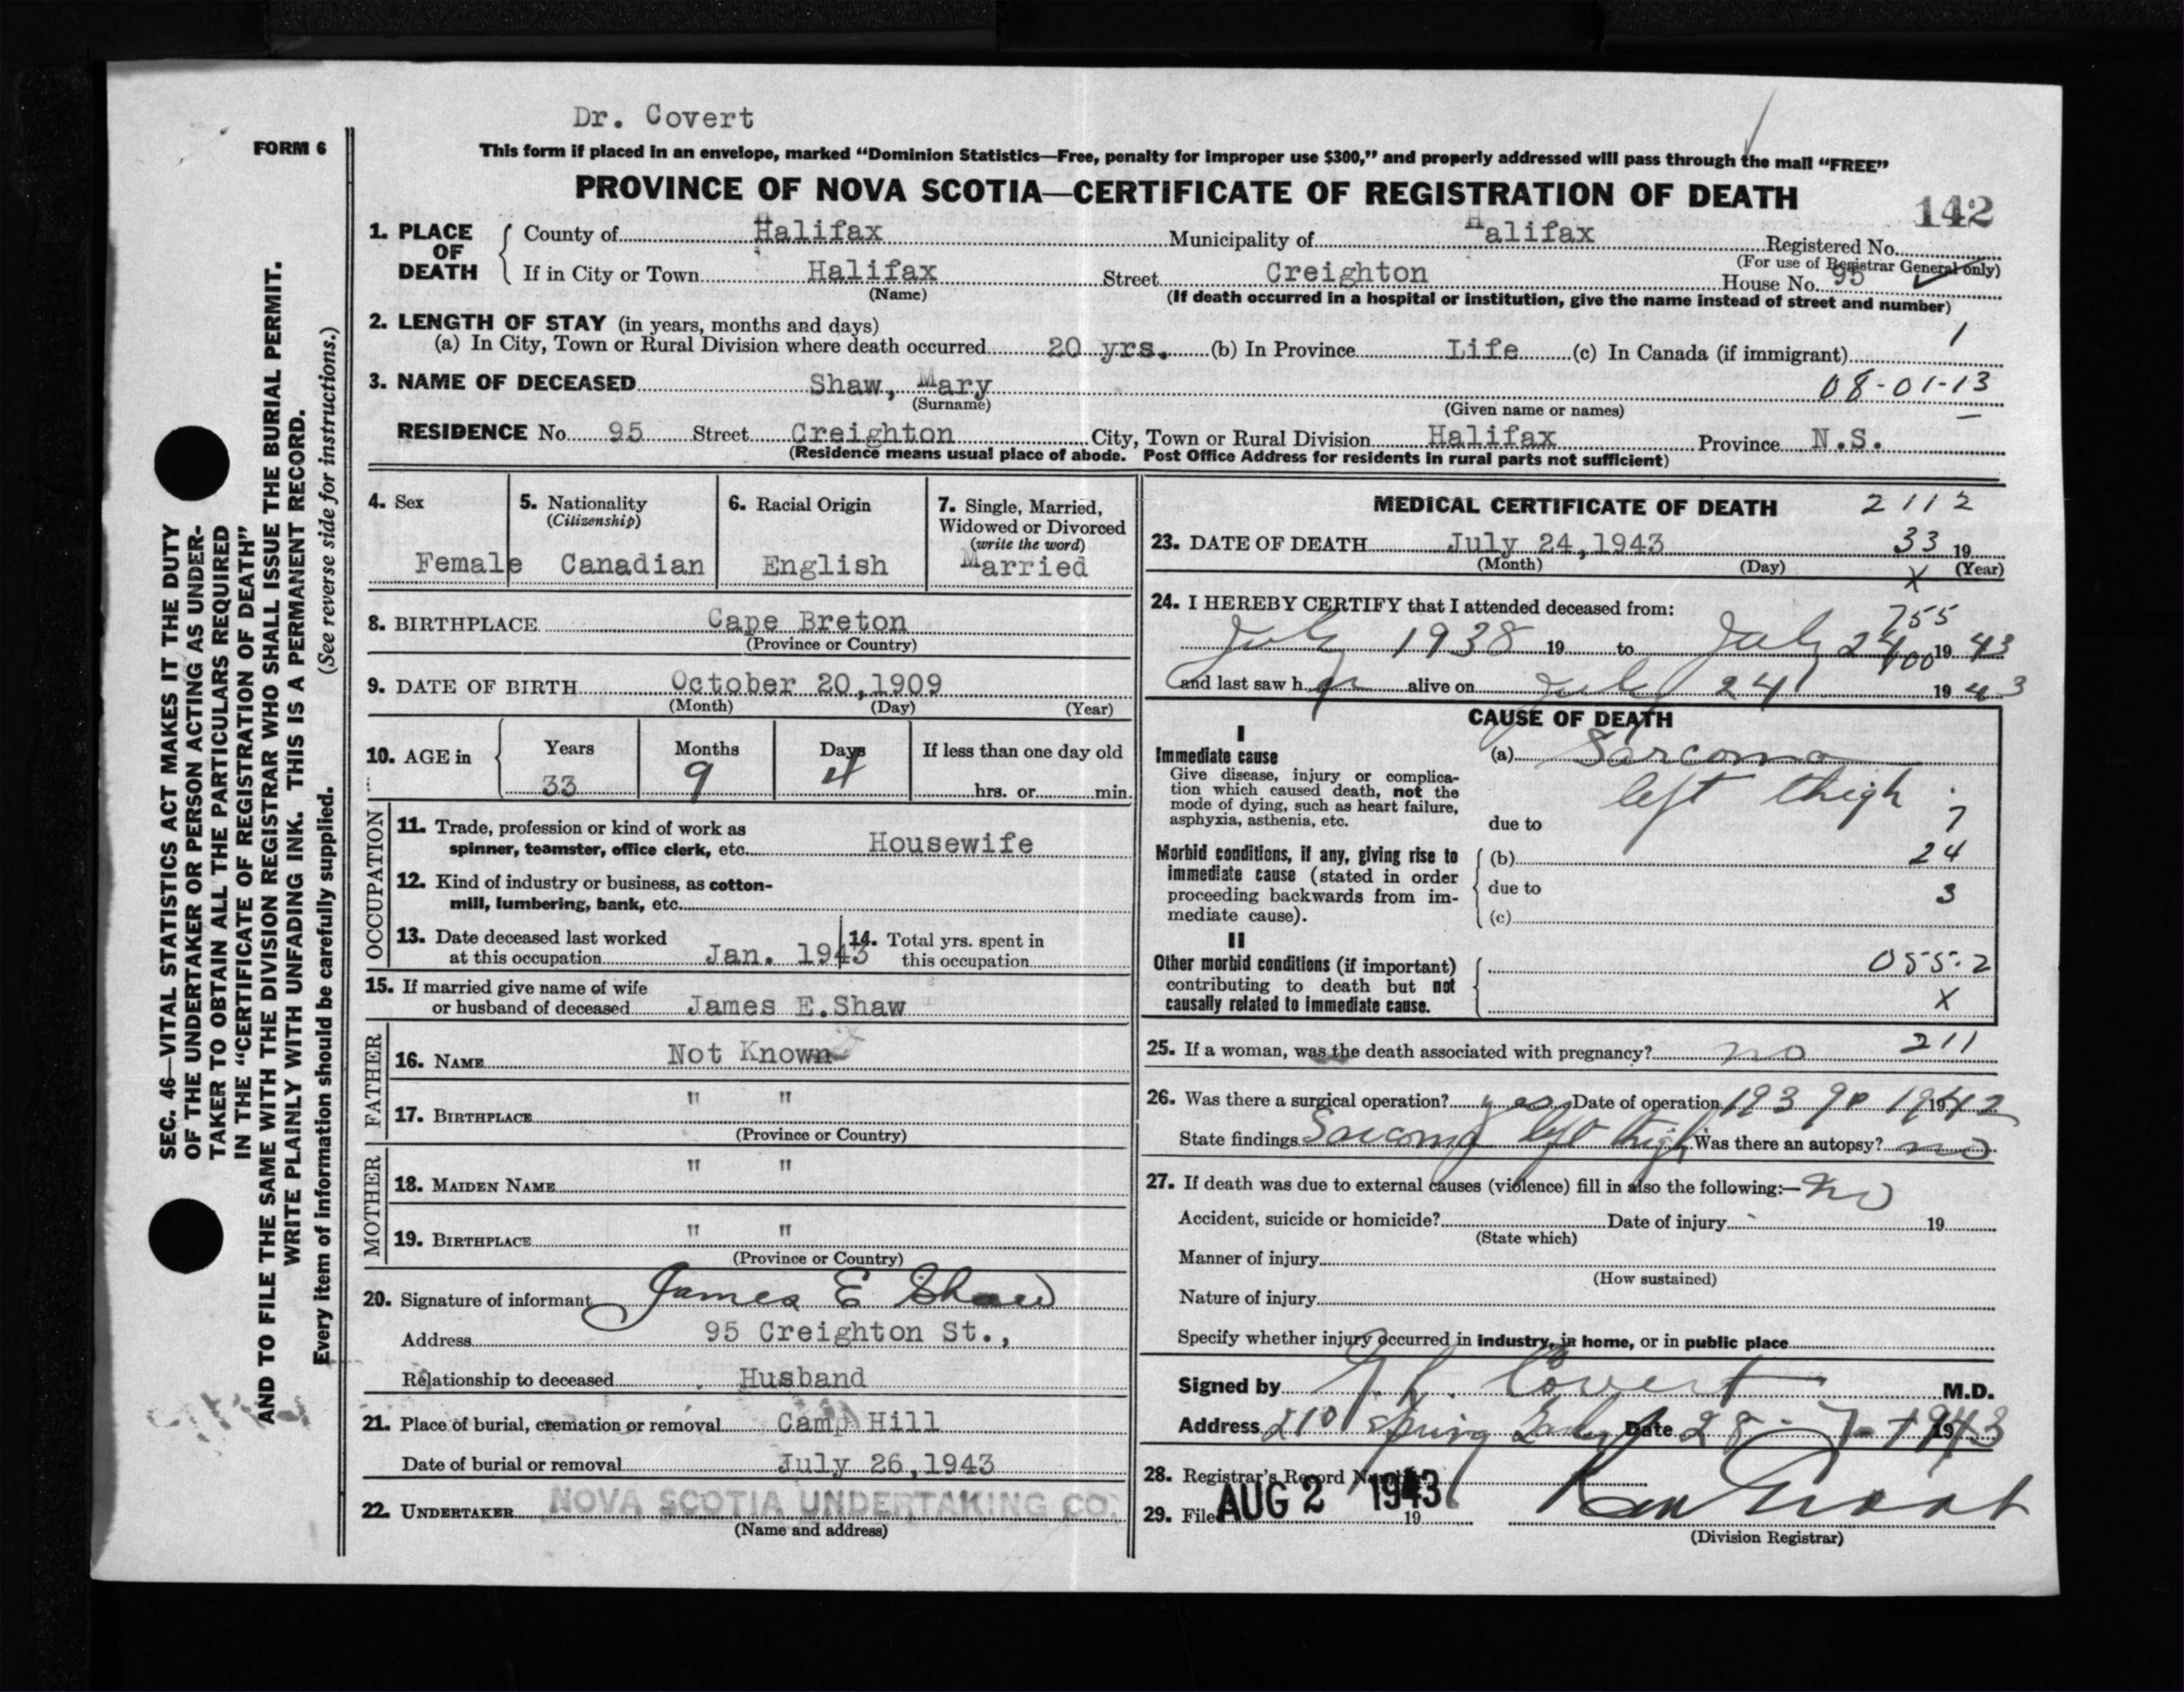 Dr. Covert
FORM 6
This form if placed in an envelope, marked “Dominion Statistics—Free, penalty for improper use $300,” and properly addressed will pass through the mail “FREE”
PROVINCE OF NOVA SCOTIA—CERTIFICATE OF REGISTRATION OF DEATH
142
1. PLACE OF DEATH
County of Halifax Municipality of Halifax Registered No.
(For use of Registrar General only)
If in City or Town Halifax Street Creighton House No. 95
(Name) (If death occurred in a hospital or institution, give the name instead of street and number)
2. LENGTH OF STAY (in years, months and days)
(a) In City, Town or Rural Division where death occurred 20 yrs. (b) In Province Life (c) In Canada (if immigrant)
1
3. NAME OF DECEASED Shaw, Mary 08-01-13
(Surname) (Given name or names)
RESIDENCE No. 95 Street Creighton City, Town or Rural Division Halifax Province N.S.
(Residence means usual place of abode. Post Office Address for residents in rural parts not sufficient)
SEC. 46—VITAL STATISTICS ACT MAKES IT THE DUTY
OF THE UNDERTAKER OR PERSON ACTING AS UNDER-
TAKER TO OBTAIN ALL THE PARTICULARS REQUIRED
IN THE “CERTIFICATE OF REGISTRATION OF DEATH”
AND TO FILE THE SAME WITH THE DIVISION REGISTRAR WHO SHALL ISSUE THE BURIAL PERMIT.
WRITE PLAINLY WITH UNFADING INK. THIS IS A PERMANENT RECORD.
Every item of information should be carefully supplied. (See reverse side for instructions.)
4. Sex
Female
5. Nationality
(Citizenship)
Canadian
6. Racial Origin
English
7. Single, Married,
Widowed or Divorced
(write the word)
Married
8. BIRTHPLACE Cape Breton
(Province or Country)
9. DATE OF BIRTH October 20, 1909
(Month) (Day) (Year)
10. AGE in
Years Months Days If less than one day old
33 9 4 hrs. or min.
OCCUPATION
11. Trade, profession or kind of work as
spinner, teamster, office clerk, etc. Housewife
12. Kind of industry or business, as cotton-
mill, lumbering, bank, etc.
13. Date deceased last worked
at this occupation Jan. 1943
14. Total yrs. spent in
this occupation
15. If married give name of wife
or husband of deceased James E. Shaw
FATHER
16. NAME Not Known
17. BIRTHPLACE " "
(Province or Country)
MOTHER
18. MAIDEN NAME " "
19. BIRTHPLACE " "
(Province or Country)
20. Signature of informant James E Shaw
Address 95 Creighton St.,
Relationship to deceased Husband
21. Place of burial, cremation or removal Camp Hill
Date of burial or removal July 26, 1943
22. UNDERTAKER NOVA SCOTIA UNDERTAKING CO.
(Name and address)
MEDICAL CERTIFICATE OF DEATH 2112
23. DATE OF DEATH July 24, 1943 33 19
(Month) (Day) (Year)
X
24. I HEREBY CERTIFY that I attended deceased from:
755
July 1938 19 to July 24 19 43
400
and last saw her alive on July 24 19 43
CAUSE OF DEATH
I
Immediate cause
Give disease, injury or complica-
tion which caused death, not the
mode of dying, such as heart failure,
asphyxia, asthenia, etc.
(a) Sarcoma
left thigh
due to 7
Morbid conditions, if any, giving rise to
immediate cause (stated in order
proceeding backwards from im-
mediate cause).
(b) 24
due to 3
(c)
II
Other morbid conditions (if important)
contributing to death but not
causally related to immediate cause.
055.2
X
25. If a woman, was the death associated with pregnancy? no 211
26. Was there a surgical operation? yes Date of operation 1939 19 1942
State findings Sarcoma left thigh Was there an autopsy? no
27. If death was due to external causes (violence) fill in also the following:— no
Accident, suicide or homicide? Date of injury 19
(State which)
Manner of injury
(How sustained)
Nature of injury
Specify whether injury occurred in industry, in home, or in public place
Signed by Covert M.D.
Address 210 Spring Date 28-7-1943
28. Registrar's Record Number
29. Filed AUG 2 1943 19
(Division Registrar)